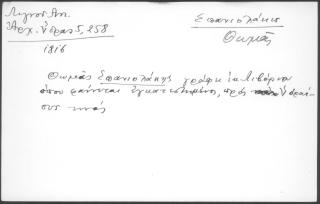 Λιγνού Αντ.
Ἀρχ. Ὕδρας 5, 258
1816
Σπανιολάκης
Θωμᾶς
Θωμᾶς Σπανιολάκης γράφει ἐκ Λιβόρνου
ὅπου φαίνεται ἐγκατεστημένος, πρὸς Ὑδραί-
ους τινάς